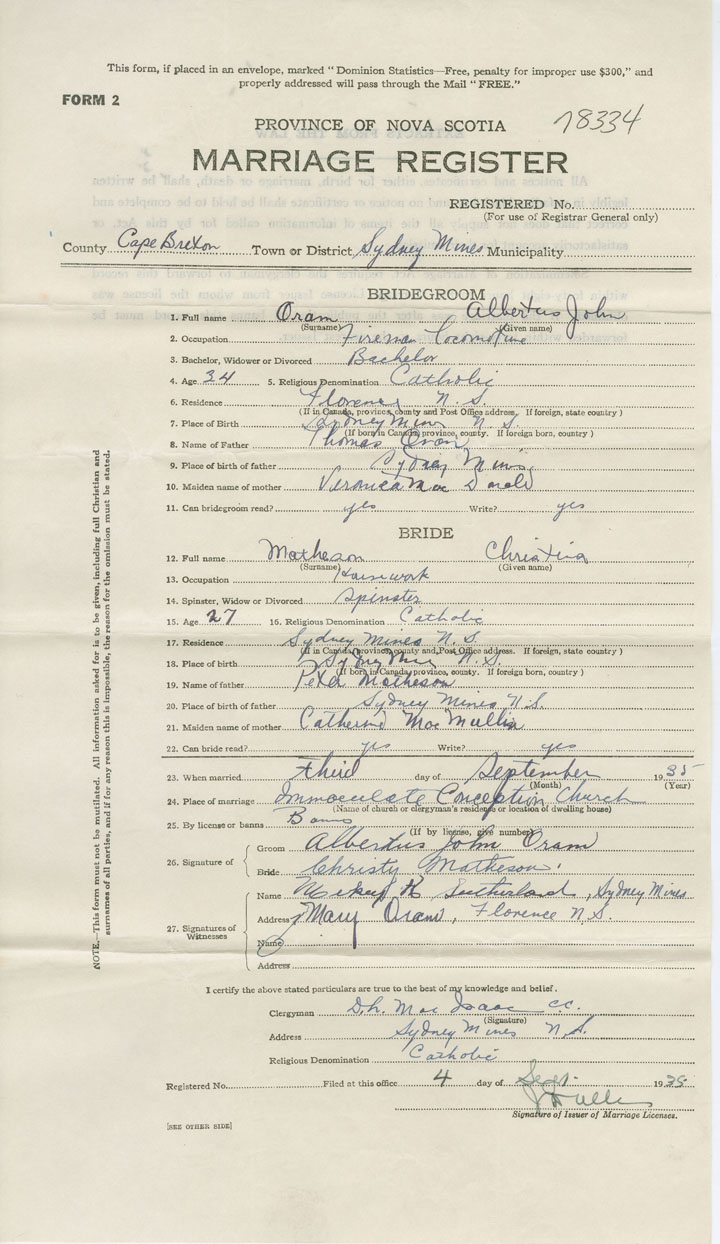 This form, if placed in an envelope, marked "Dominion Statistics—Free, penalty for improper use $300," and
properly addressed will pass through the Mail "FREE."
FORM 2
PROVINCE OF NOVA SCOTIA
78334
MARRIAGE REGISTER
REGISTERED No.
(For use of Registrar General only)
County Cape Breton Town or District Sydney Mines Municipality
BRIDEGROOM
1. Full name Oram Albertus John
(Surname) (Given name)
2. Occupation Fireman Locomotive
3. Bachelor, Widower or Divorced Bachelor
4. Age 34 5. Religious Denomination Catholic
6. Residence Florence N. S.
(If in Canada, province, county and Post Office address. If foreign, state country )
7. Place of Birth Sydney Mines N. S.
(If born in Canada, province, county. If foreign born, country )
8. Name of Father Thomas Oram
9. Place of birth of father Sydney Mines
10. Maiden name of mother Veronica Mac Donald
11. Can bridegroom read? yes Write? yes
BRIDE
12. Full name Matheson Christina
(Surname) (Given name)
13. Occupation Housework
14. Spinster, Widow or Divorced Spinster
15. Age 27 16. Religious Denomination Catholic
17. Residence Sydney Mines N. S.
(If in Canada, province, county and Post Office address. If foreign, state country )
18. Place of birth Sydney Mines N. S.
(If born in Canada, province, county. If foreign born, country )
19. Name of father Peter Matheson
20. Place of birth of father Sydney Mines N.S.
21. Maiden name of mother Catherine MacMullin
22. Can bride read? yes Write? yes
23. When married third day of September 1935
(Month) (Year)
24. Place of marriage Immaculate Conception Church
(Name of church or clergyman's residence or location of dwelling house)
25. By license or banns Banns
(If by license, give number)
26. Signature of
Groom Albertus John Oram
Bride Christy Matheson
27. Signatures of Witnesses
Name Sutherland, Sydney Mines
Address Mary Oram, Florence N.S.
Name
Address
I certify the above stated particulars are true to the best of my knowledge and belief.
Clergyman D.h. Mac Isaac c.c.
(Signature)
Address Sydney Mines N.S.
Religious Denomination Catholic
Registered No. Filed at this office 4 day of Sept. 1935
Signature of Issuer of Marriage Licenses.
[SEE OTHER SIDE]
NOTE.—This form must not be mutilated. All information asked for is to be given, including full Christian and
surnames of all parties, and if for any reason this is impossible, the reason for the omission must be stated.